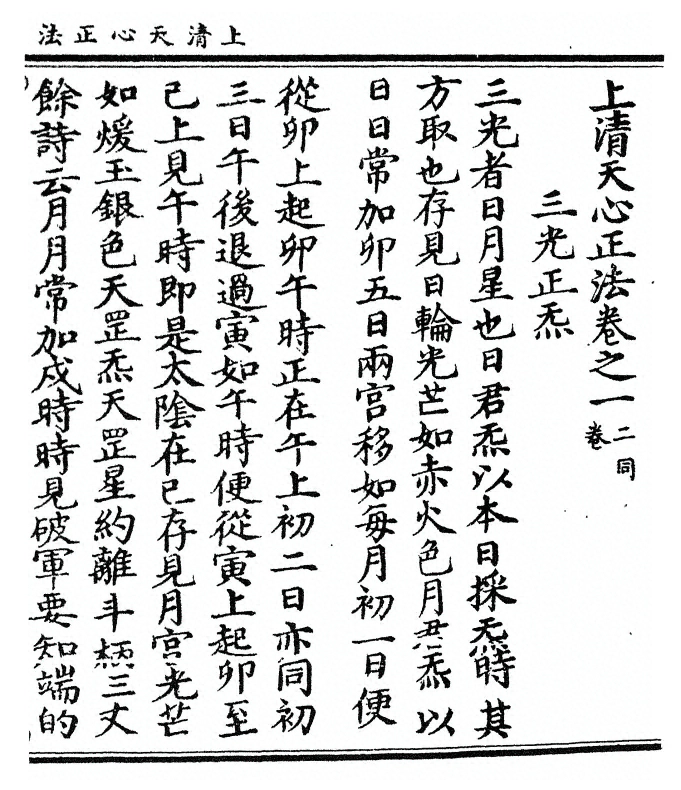 上清天心正法
上清天心正法卷之一 二同卷
三光正炁
三光者日月星也日君炁以本日採炁時其
方取也存見日輪光芒如赤火色月君炁以
日日常加卯五日兩宮移如每月初一日便
從卯上起卯午時正在午上初二日亦同初
三日午後退過寅如午時便從寅上起卯至
巳上見午時即是太陰在巳存見月宮光芒
如煖玉銀色天罡炁天罡星約離斗柄三丈
餘詩云月月常加戌時時見破軍要知端的